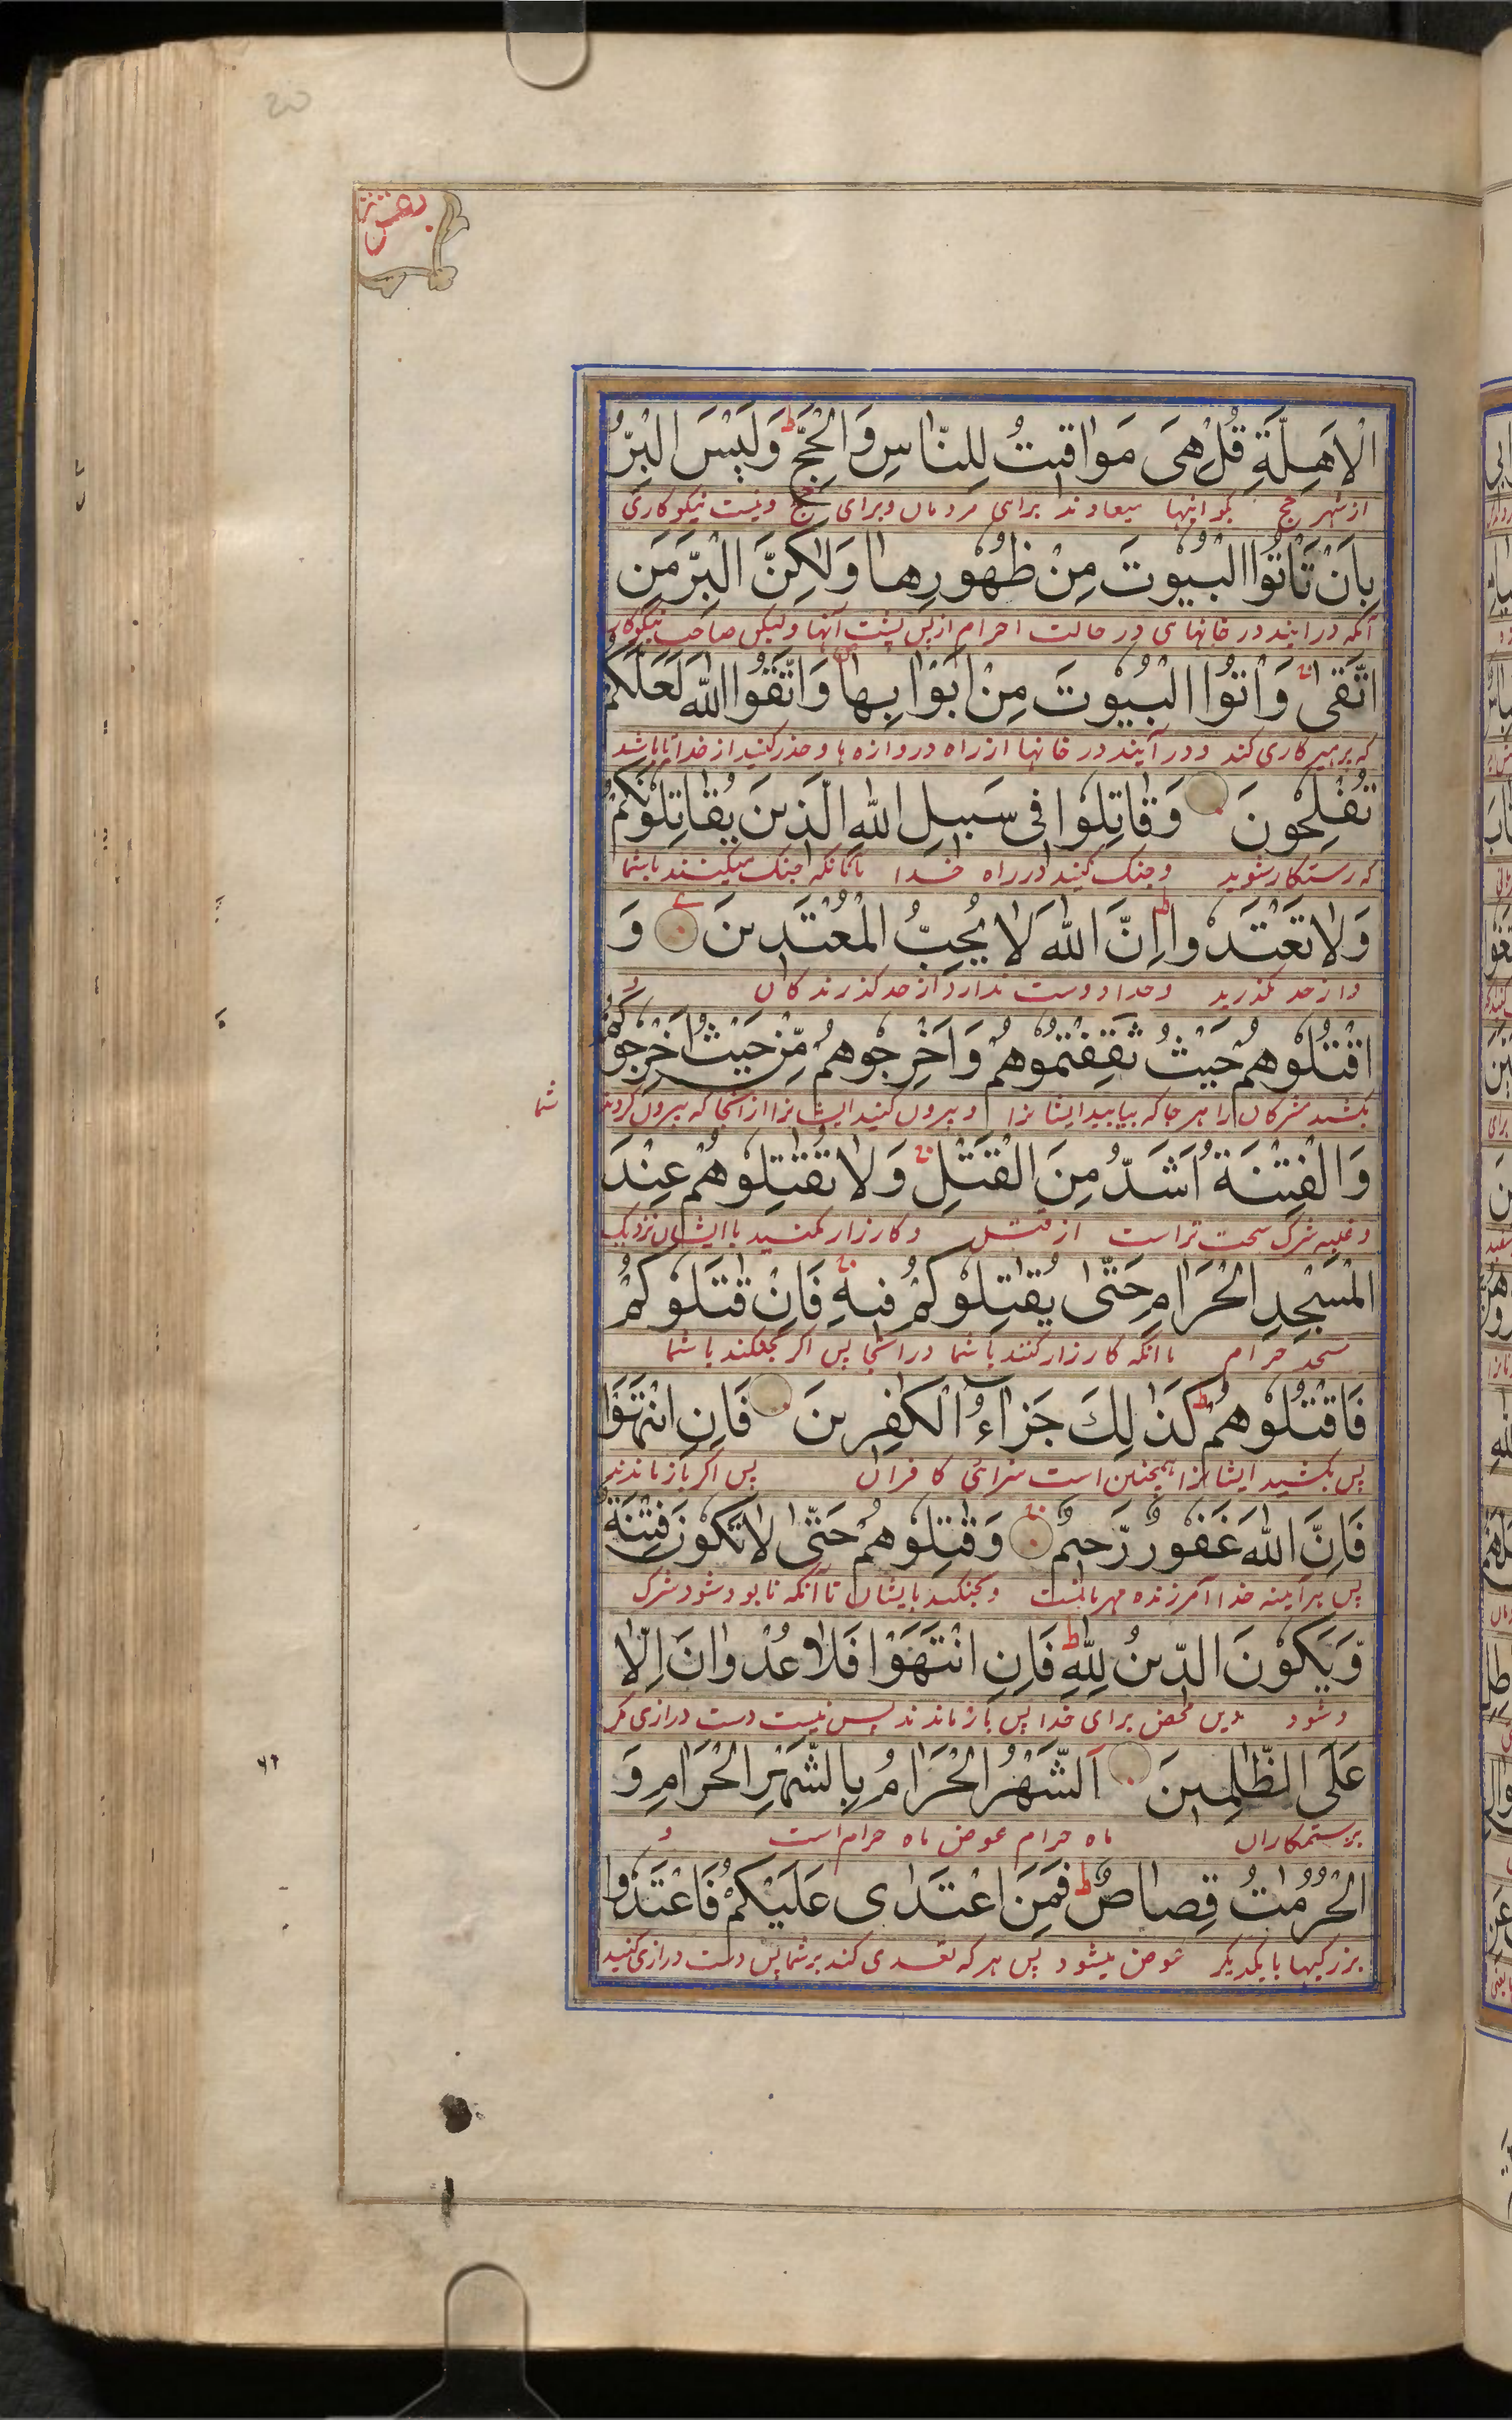 بقرة
الْاَهِلَّةِ قُلْ هِیَ مَوَاقیتُ لِلنَّاسِ وَالْحَجِّ ط وَلَیْسَ الْبِرُّ
از شهر حج بگو اینها میعادند برای مردمان و برای حج و نیست نیکوکاری
بِاَنْ تَاْتُوا الْبُیُوْتَ مِنْ ظُهُوْرِهَا وَلٰکِنَّ الْبِرَّ مَنِ
آنکه در ایند در خانهای در حالت احرام از پس پشت آنها ولیکن صاحب نیکوکار
اتَّقٰی وَاْتُوا الْبُیُوْتَ مِنْ اَبْوَابِهَا وَاتَّقُوا اللهَ لَعَلَّکُمْ
که پرهیزکاری کند و در آیند در خانها از راه دروازه ها و حذر کنید از خدا تا باشد
تُفْلِحُوْنَ وَقَاتِلُوْا فِی سَبِیلِ اللهِ الَّذِینَ یُقَاتِلُوْنَکُمْ
که رستکار شوید و جنک کنید در راه خدا با آنانکه جنک میکنند با شما
وَلَا تَعْتَدُوْا ط اِنَّ اللهَ لَا یُحِبُّ الْمُعْتَدِینَ وَ
و از حد مگذرید و خدا دوست ندارد از حد گذرندگان و
اقْتُلُوْهُمْ حَیْثُ ثَقِفْتُمُوْهُمْ وَاَخْرِجُوْهُمْ مِّنْ حَیْثُ اَخْرَجُوْکُمْ
بکشید مشرکان را هر جا که بیابید ایشانرا و بیرون کنید ایشانرا از آنجا که بیرون کردند
شما
وَالْفِتْنَةُ اَشَدُّ مِنَ الْقَتْلِ وَلَا تُقٰتِلُوْهُمْ عِنْدَ
و غلبه شرک سخت تر است از قتل و کارزار مکنید با ایشان نزدیک
الْمَسْجِدِ الْحَرَامِ حَتّٰی یُقٰتِلُوْکُمْ فِیهِ فَاِنْ قٰتَلُوْکُمْ
مسجد حرام تا آنکه کارزار کنند با شما در آنجا پس اگر جنگ کنند با شما
فَاقْتُلُوْهُمْ ط کَذٰلِكَ جَزَآءُ الْکٰفِرِینَ فَاِنِ انْتَهَوْا
پس بکشید ایشانرا همچنین است سزای کافران پس اگر باز ماندند
فَاِنَّ اللهَ غَفُوْرٌ رَّحِیمٌ وَقٰتِلُوْهُمْ حَتّٰی لَا تَکُوْنَ فِتْنَةٌ
پس هر آینه خدا آمرزنده مهربانست و بجنکید بایشان تا آنکه نابود شود شرک
وَّیَکُوْنَ الدِّینُ لِلّٰهِ ط فَاِنِ انْتَهَوْا فَلَا عُدْوَانَ اِلَّا
و شود دین محض برای خدا پس باز ماندند پس نیست دست درازی مکر
عَلَی الظّٰلِمِینَ اَلشَّهْرُ الْحَرَامُ بِالشَّهْرِ الْحَرَامِ وَ
بر ستمکاران ماه حرام عوض ماه حرام است و
الْحُرُمٰتُ قِصَاصٌ ط فَمَنِ اعْتَدٰی عَلَیْکُمْ فَاعْتَدُوْا
بزرکیها با یکدیگر عوض میشود پس هر که تعدی کند بر شما پس دست درازی کنید